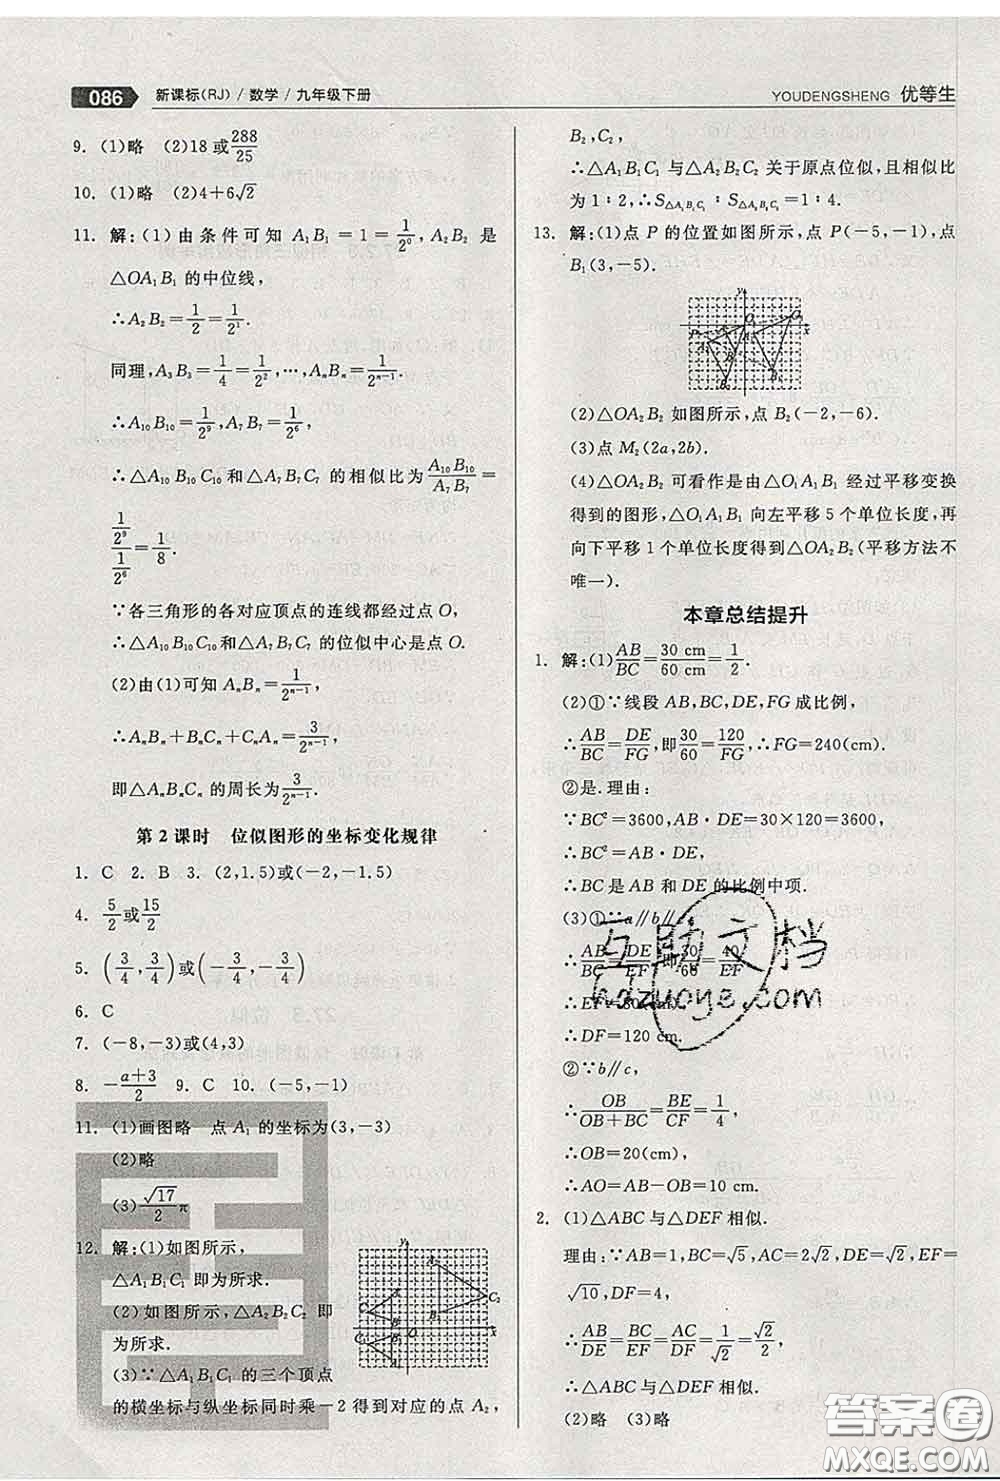 086 新课标(RJ) / 数学 / 九年级下册
YOUDENGSHENG 优等生
9. (1)略 (2)18 或 288/25
10. (1)略 (2)4+6√2
11. 解:(1)由条件可知 A₁B₁=1=1/2⁰, A₂B₂ 是
△OA₁B₁ 的中位线,
∴A₂B₂=1/2=1/2¹.
同理, A₃B₃=1/4=1/2²,…,AₙBₙ=1/2ⁿ⁻¹.
∴A₁₀B₁₀=1/2⁹,A₇B₇=1/2⁶,
∴△A₁₀B₁₀C₁₀和△A₇B₇C₇ 的相似比为 A₁₀B₁₀/A₇B₇=
(1/2⁹)/(1/2⁶)=1/8.
∵各三角形的各对应顶点的连线都经过点 O,
∴△A₁₀B₁₀C₁₀和△A₇B₇C₇的位似中心是点 O.
(2)由(1)可知 AₙBₙ=1/2ⁿ⁻¹,
∴AₙBₙ+BₙCₙ+CₙAₙ=3/2ⁿ⁻¹,
即△AₙBₙCₙ 的周长为3/2ⁿ⁻¹.
第 2 课时 位似图形的坐标变化规律
1. C 2. B 3. (2,1.5)或(-2,-1.5)
4. 5/2或15/2
5. (3/4,3/4)或(-3/4,-3/4)
6. C
7. (-8,-3)或(4,3)
8. -(a+3)/2 9. C 10. (-5,-1)
11. (1)画图略 点 A₁ 的坐标为(3,-3)
(2)略
(3)√17/2 π
12. 解:(1)如图所示,
△A₁B₁C₁ 即为所求.
(2)如图所示,△A₂B₂C₂ 即
为所求.
(3)∵△A₁B₁C₁ 的三个顶点
的横坐标与纵坐标同时乘-2得到对应的点 A₂,
B₂,C₂,
∴△A₁B₁C₁ 与△A₂B₂C₂ 关于原点位似,且相似
比为 1∶2,∴S△A₁B₁C₁∶S△A₂B₂C₂=1∶4.
13. 解:(1)点 P 的位置如图所示,点 P(-5,-1),点
B₁(3,-5).
(2)△OA₂B₂ 如图所示,点 B₂(-2,-6).
(3)点 M₂(2a,2b).
(4)△OA₂B₂ 可看作是由△O₁A₁B₁ 经过平移变换
得到的图形,△O₁A₁B₁ 向左平移 5 个单位长度,再
向下平移 1 个单位长度得到△OA₂B₂(平移方法不
唯一).
本章总结提升
1. 解:(1)AB/BC=30 cm/60 cm=1/2.
(2)①∵线段 AB,BC,DE,FG 成比例,
∴AB/BC=DE/FG,即30/60=120/FG,∴FG=240(cm).
②是.理由:
∵BC²=3600,AB·DE=30×120=3600,
∴BC²=AB·DE,
∴BC是 AB 和 DE 的比例中项.
(3)①∵a∥b∥
∴AB/BC=DE/EF,即30/60=40/EF,
∴EF=80 cm,
∴DF=120 cm.
②∵b∥c,
∴OB/(OB+BC)=BE/CF=1/4,
∴OB=20(cm),
∴AO=AB-OB=10 cm.
2. (1)△ABC 与△DEF 相似.
理由:∵AB=1,BC=√5,AC=2√2,DE=√2,EF=
√10,DF=4,
∴AB/DE=BC/EF=AC/DF=1/√2=√2/2,
∴△ABC 与△DEF 相似.
(2)略 (3)略
互助文档
hdzuoye.com
答案圈
MXQE.COM